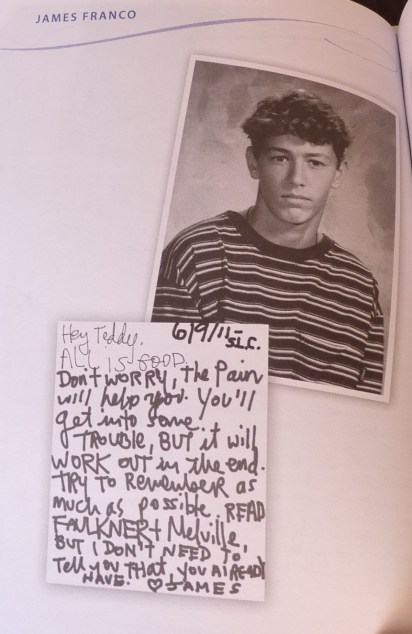 JAMES FRANCO
6/9/11-
S.L.C.
Hey Teddy,
ALL IS GOOD.
Don't WORRY, the Pain
will help you. You'll
get into some
TROUBLE, BUT it will
WORK OUT in the end.
TRY TO Remember as
much as possible. READ
FAULKNER + Melville
BUT I DON'T NEED TO
Tell you THAT, you AlREADY
HAVE. ♡ JAMES